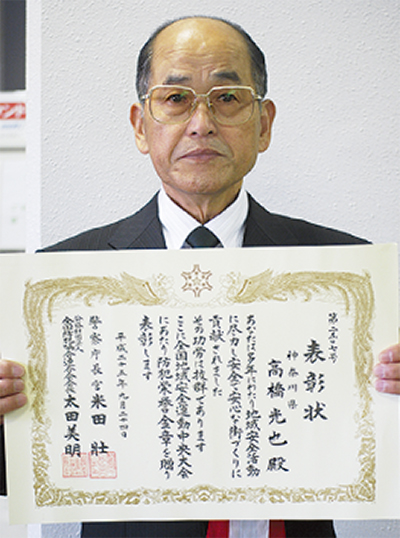 表彰状
神奈川県
高橋光也殿
あなたは多年にわたり地域安全活動
に尽力し安全で安心な街づくりに
貢献されました
その功労は抜群であります
ここに全国地域安全運動中央大会
にあたり防犯栄誉金章を贈り
表彰します
平成二十五年九月二十四日
警察庁長官 米田壮
太田美明